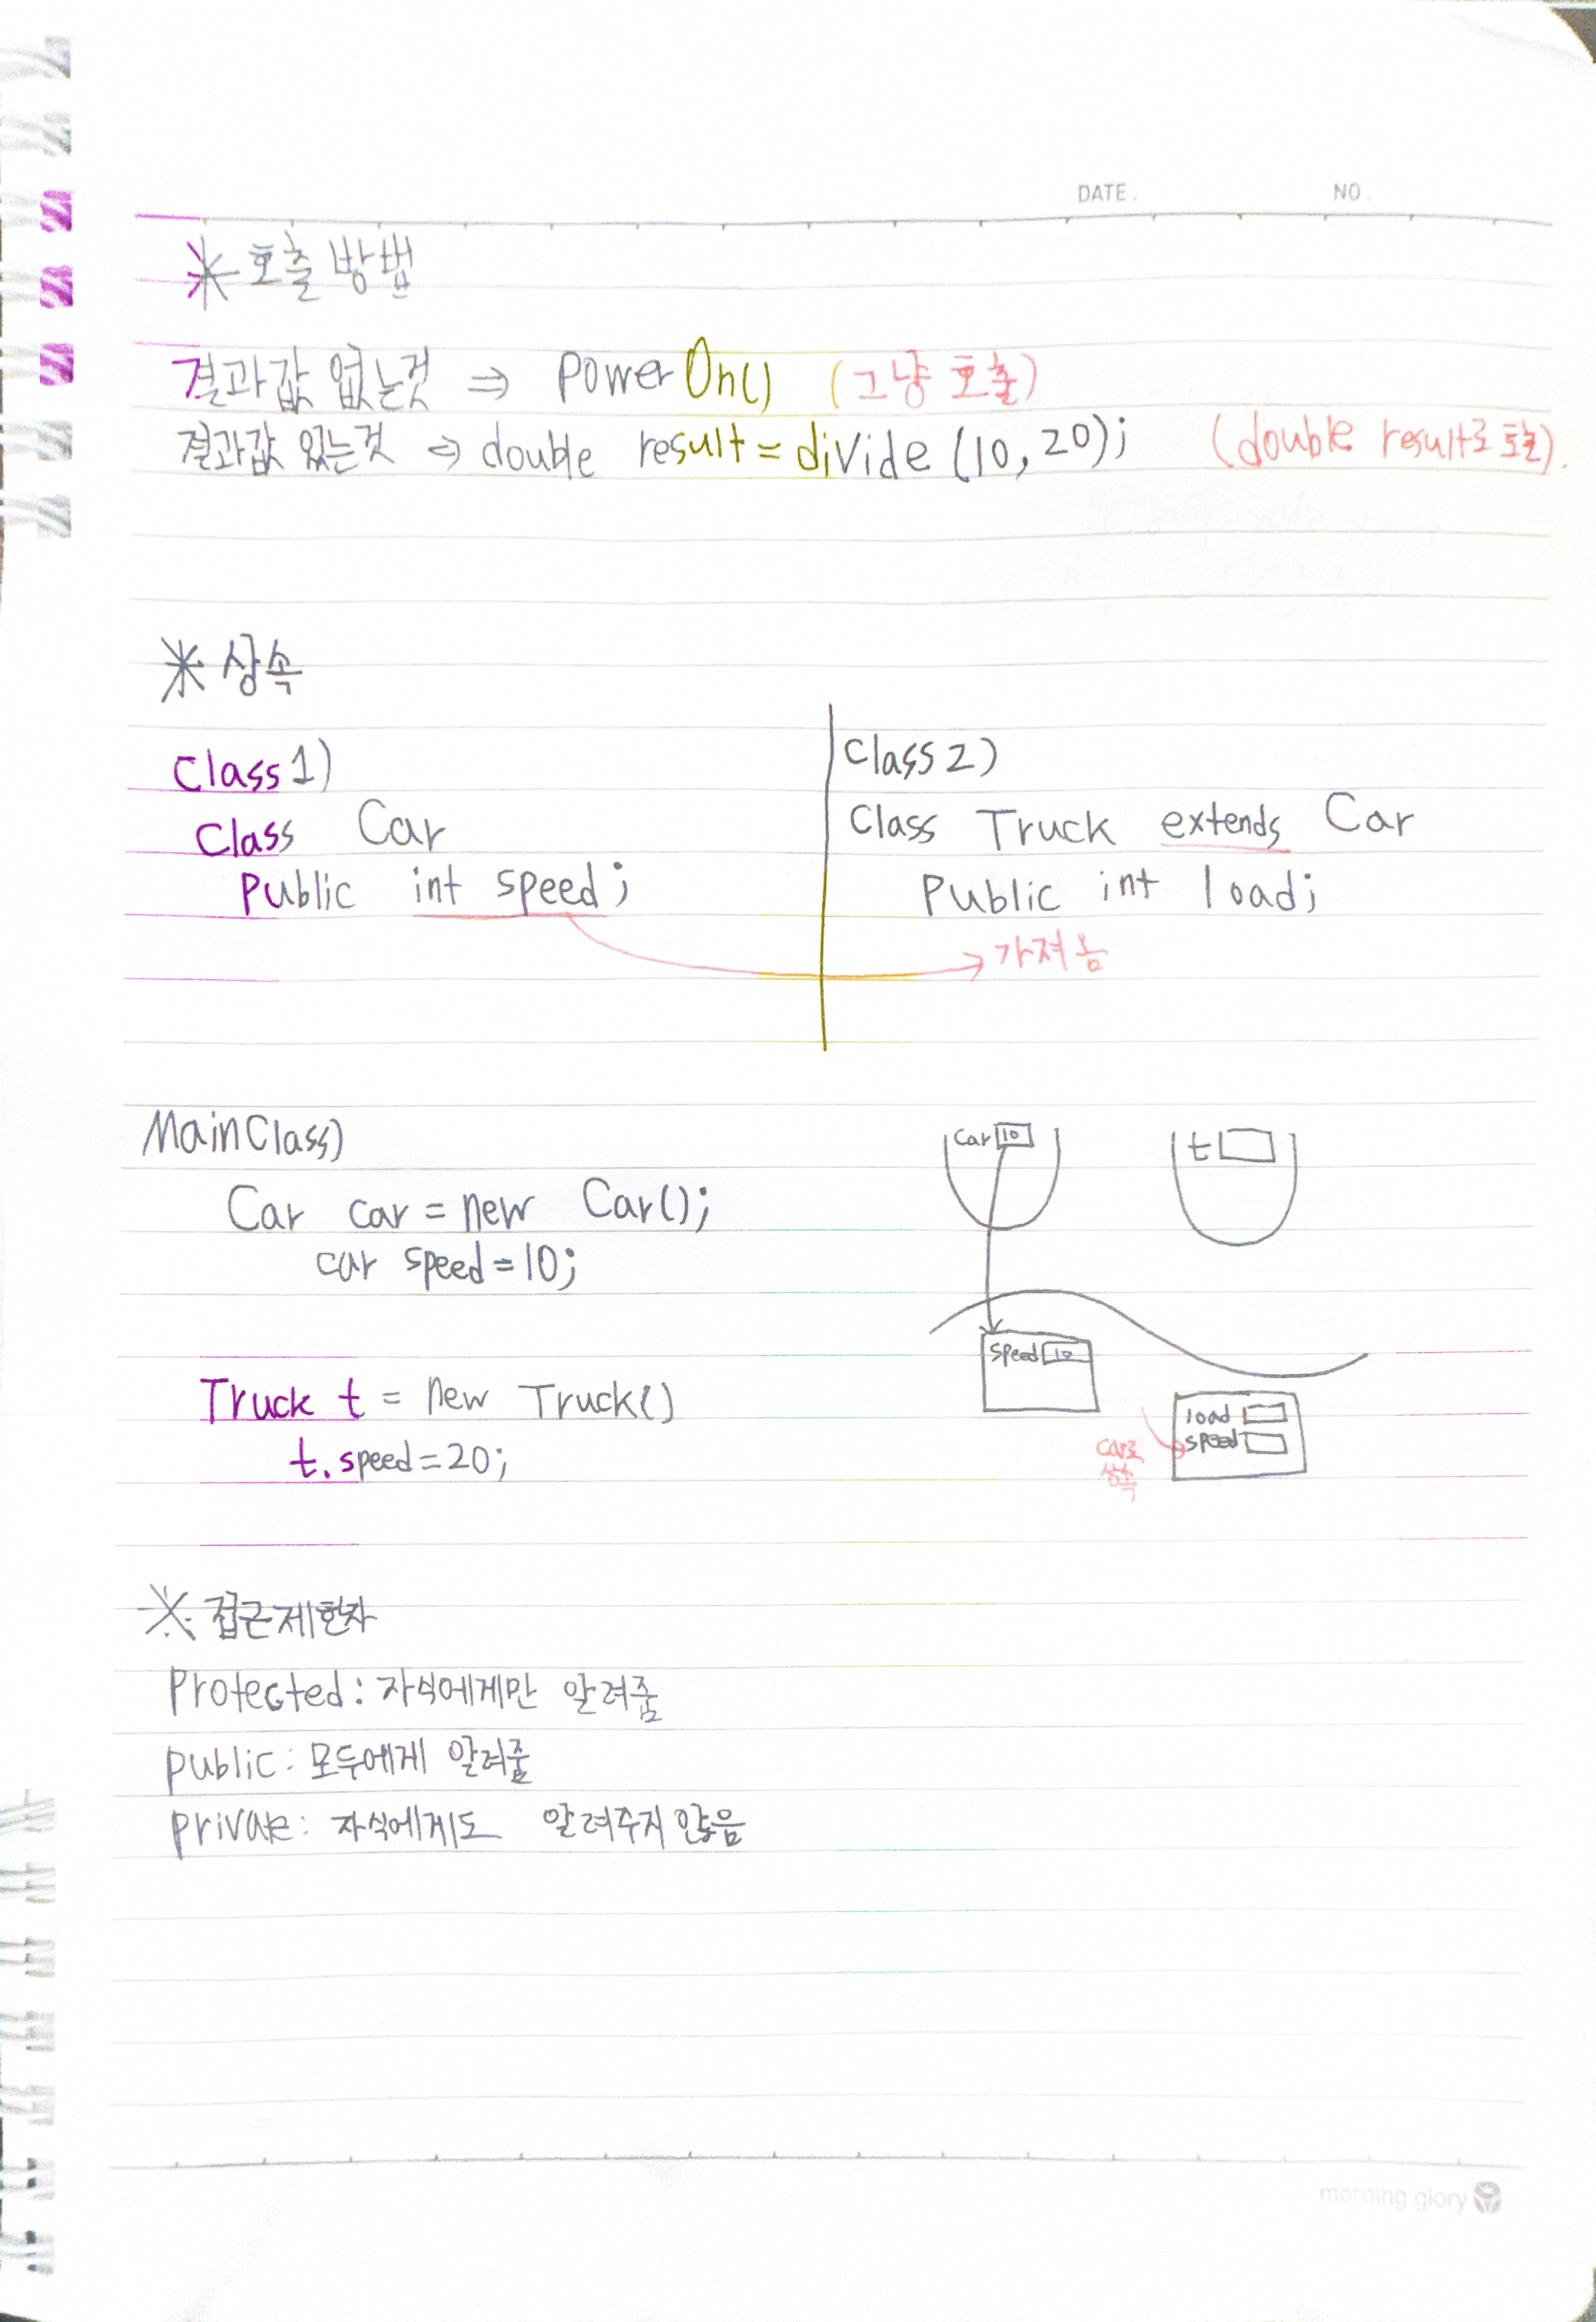 DATE. NO.
※ 호출 방법
결과값 없는것 ⇒ PowerOn() (그냥 호출)
결과값 있는것 ⇒ double result = divide (10, 20); (double result로 호출).
※ 상속
Class 1)
Class Car
Public int speed;
Class 2)
Class Truck extends Car
Public int load;
→ 가져옴
MainClass)
Car car = new Car();
car speed = 10;
Truck t = new Truck()
t. speed = 20;
Car 10
t
speed 10
load
speed
car로
상속
※ 접근제한자
Protected : 자식에게만 알려줌
public : 모두에게 알려줌
private : 자식에게도 알려주지 않음
morning glory